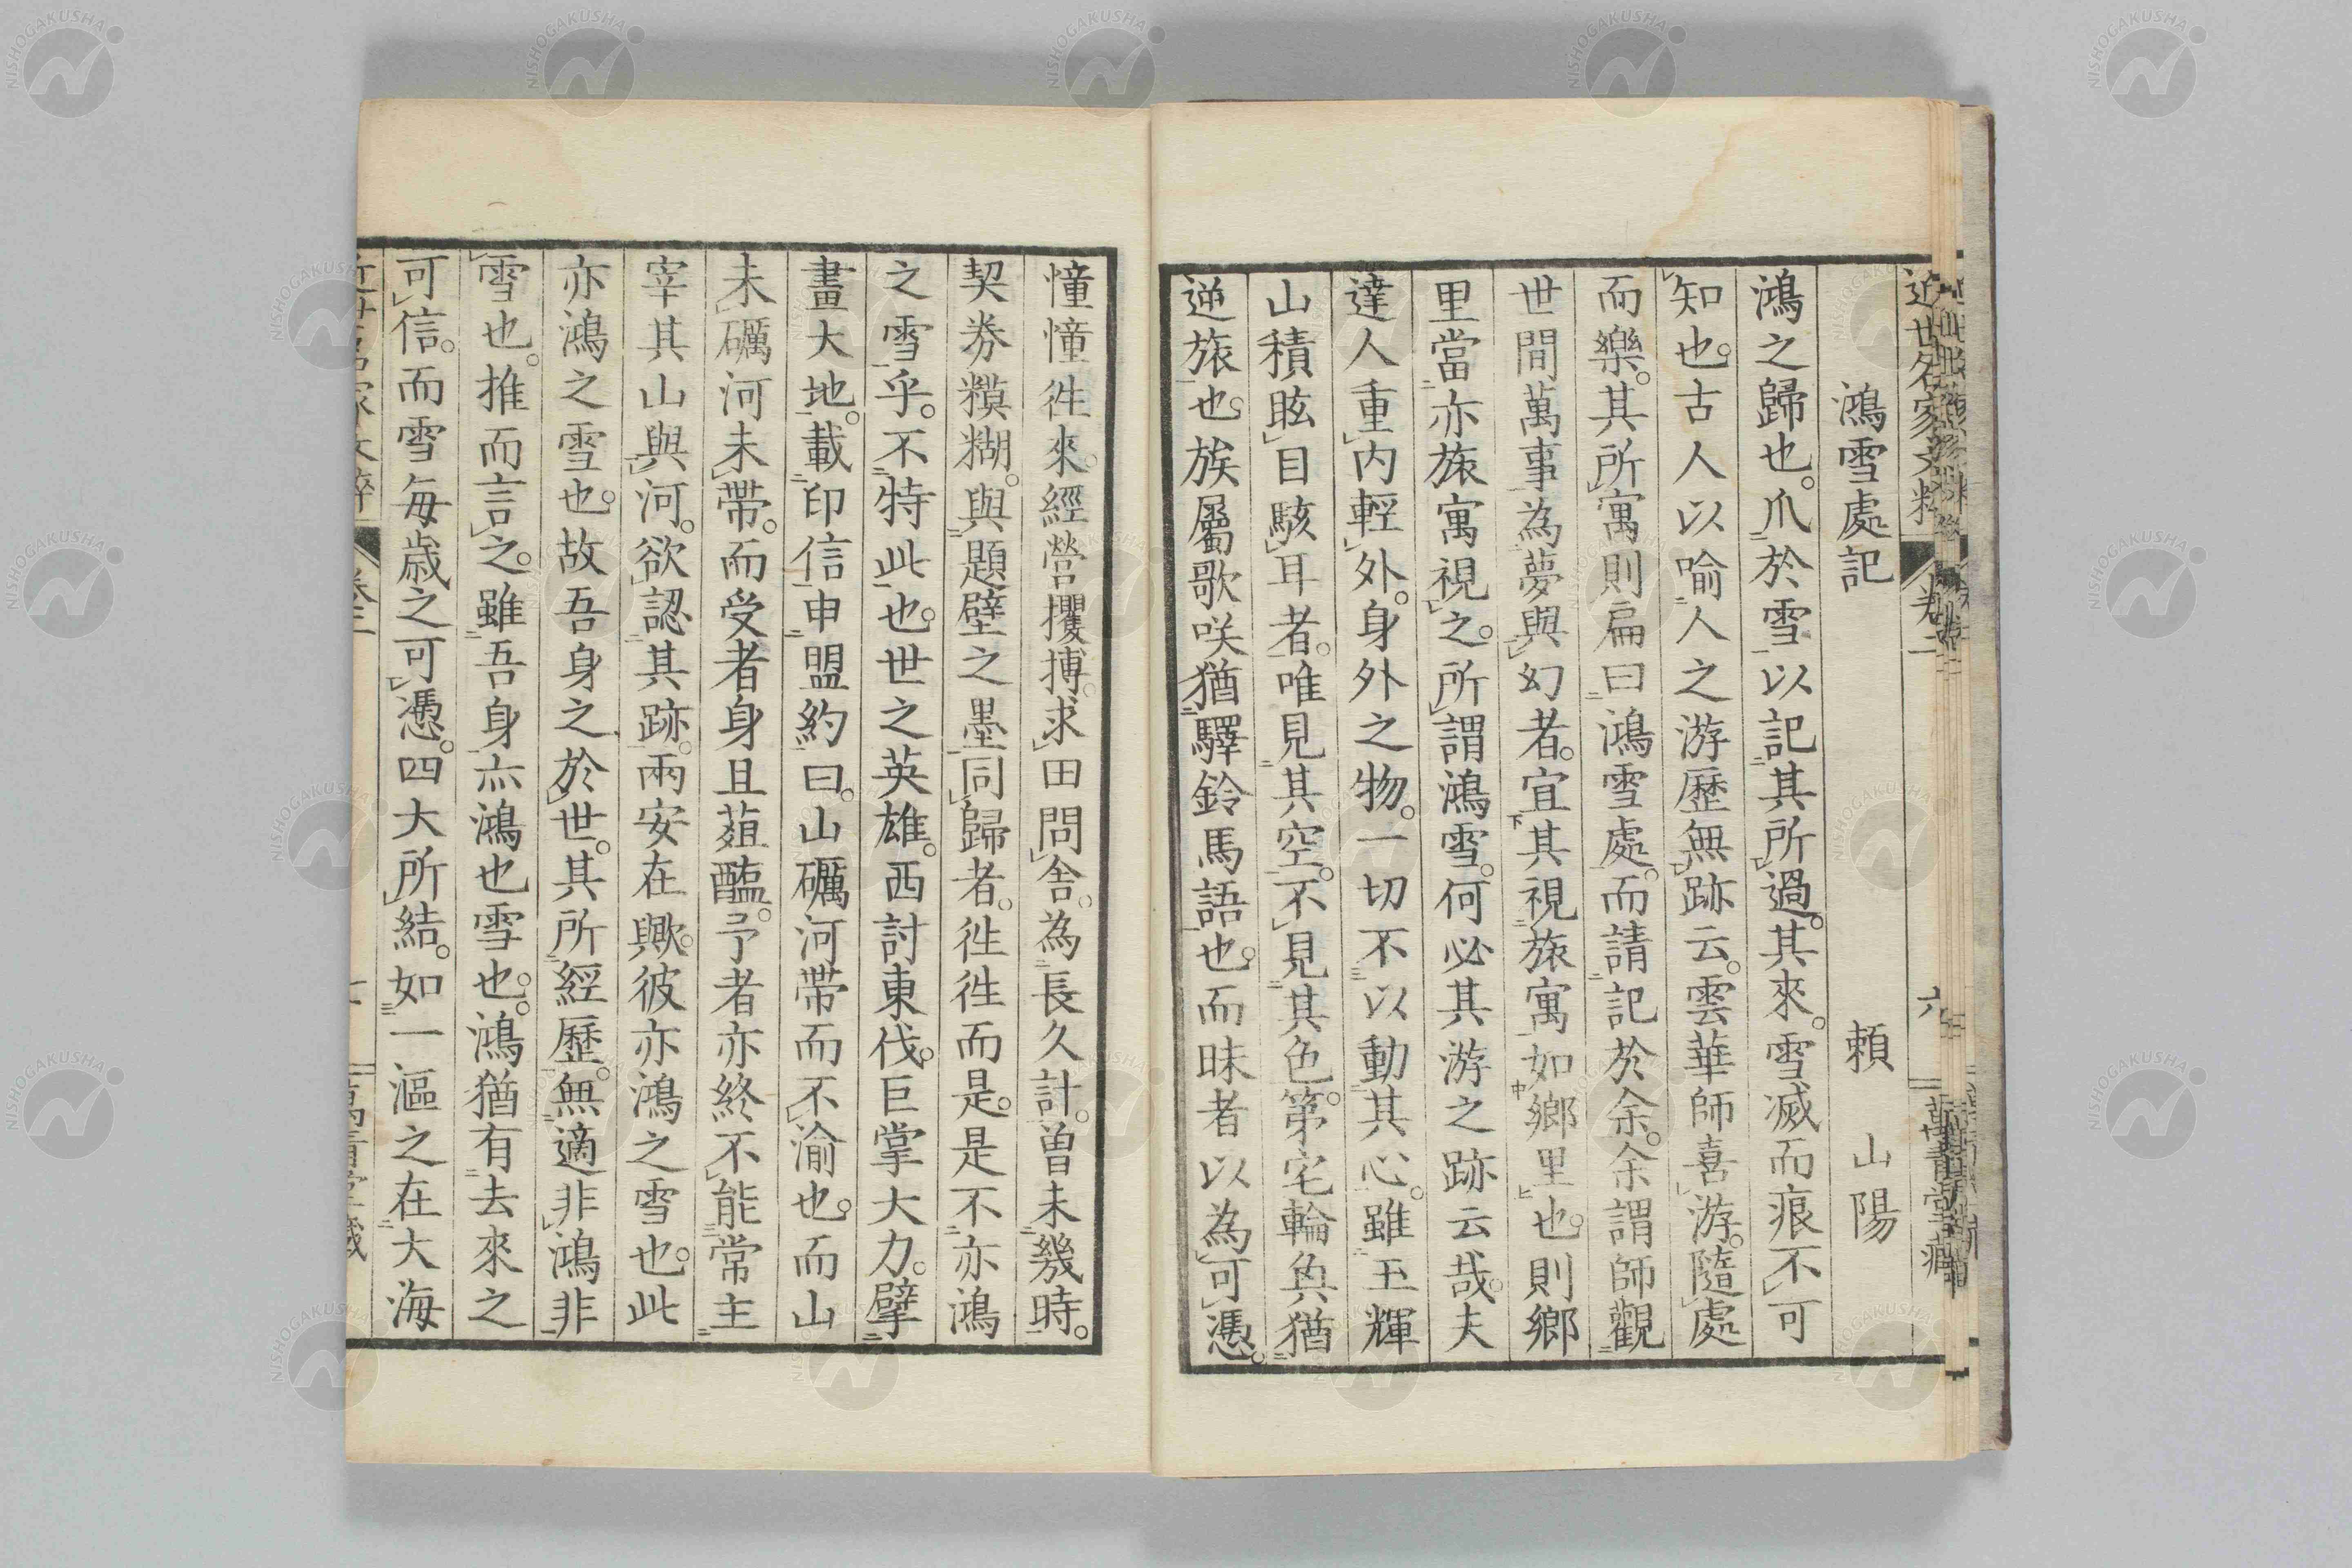 鴻雪處記　賴　山陽
鴻之歸也。爪於雪以記其所過。其來。雪滅而痕不可
知也。古人以喻人之游歷無跡云。雲華師喜游。隨處
而樂。其所寓則扁曰鴻雪處。而請記於余。余謂師觀
世間萬事為夢與幻者。宜其視旅寓如鄉里也。則鄉
里當亦旅寓視之。所謂鴻雪。何必其游之跡云哉。夫
達人重內輕外。身外之物。一切不以動其心。雖玉輝
山積眩目駭耳者。唯見其空。不見其色。第宅輪奐猶
逆旅也。族屬歌咲猶驛鈴馬語也。而昧者以為可憑。
憧憧徃來。經營攫搏。求田問舍。為長久計。曾未幾時。
契券糢糊。與題壁之墨同歸者。徃徃而是。是不亦鴻
之雪乎。不特此也。世之英雄。西討東伐。巨掌大力。擘
畫大地。載印信申盟約曰。山礪河帶而不渝也。而山
未礪河未帶。而受者身且葅醢。予者亦終不能常主
宰其山與河。欲認其跡。兩安在歟。彼亦鴻之雪也。此
亦鴻之雪也。故吾身之於世。其所經歷。無適非鴻非
雪也。推而言之。雖吾身亦鴻也雪也。鴻猶有去來之
可信。而雪每歲之可憑。四大所結。如一漚之在大海
近世名家文粹　卷二　六